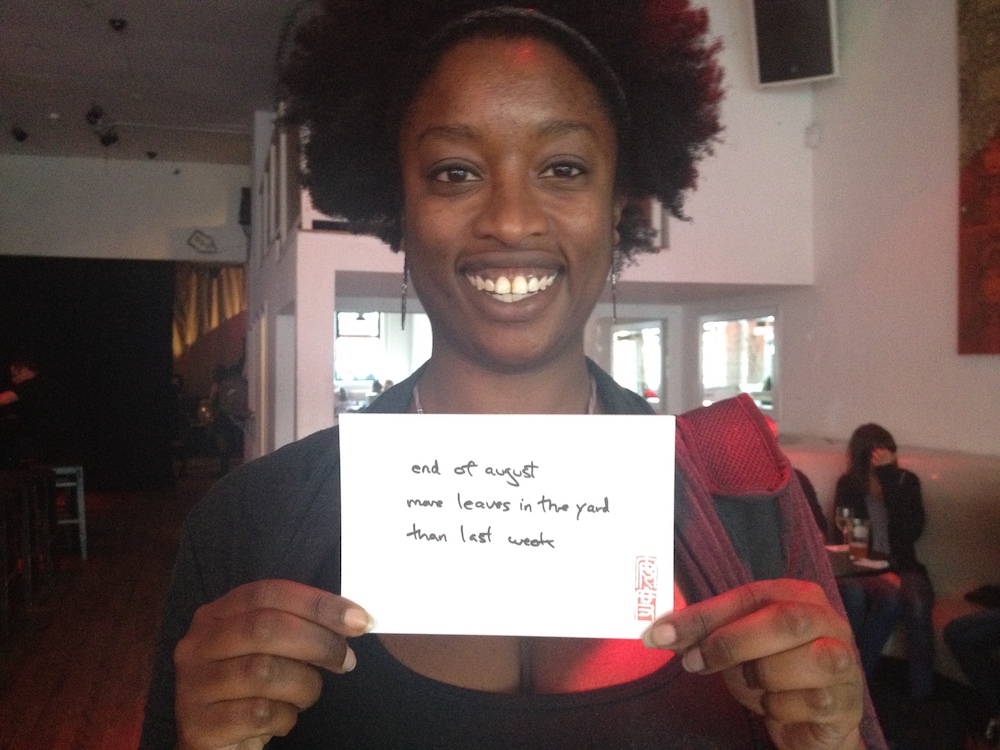 end of august
more leaves in the yard
than last week